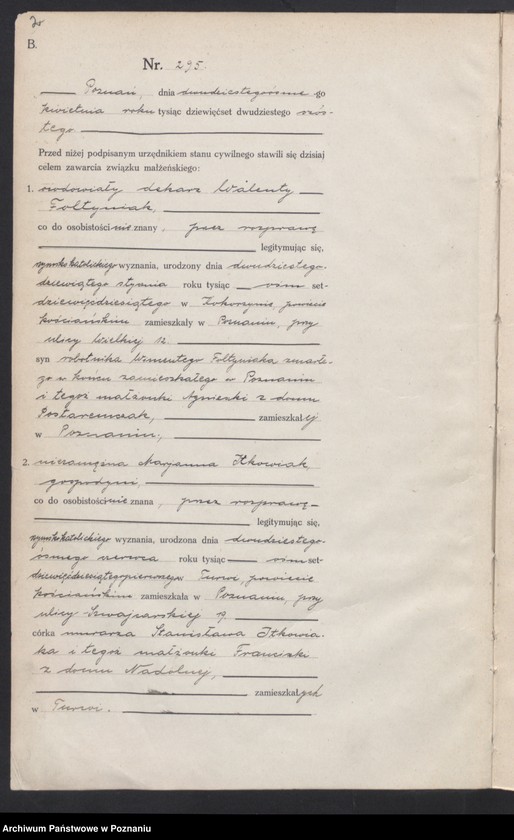 B.
Nr. 295
Poznań, dnia dwudziestegoósme go
kwietnia roku tysiąc dziewięćset dwudziestego szós-
tego
Przed niżej podpisanym urzędnikiem stanu cywilnego stawili się dzisiaj
celem zawarcia związku małżeńskiego:
1. owdowiały dekarz Walenty
Foltyniak,
co do osobistości nie znany, przez rozprawę
legitymując się,
rzymskokatolickiego wyznania, urodzony dnia dwudziestego-
dziewiątego stycznia roku tysiąc ośm set-
dziewięćdziesiątego w Kokorzynie, powiecie
kościańskim zamieszkały w Poznaniu, przy
ulicy Wielkiej 12.
syn robotnika Foltyniaka zmarłe-
go w końcu zamieszkałego w Poznaniu
i tegoż małżonki Agnieszki z domu
zamieszkałej
w Poznaniu,
2. niezamężna Marjanna Itkowiak,
gospodyni,
co do osobistości nie znana, przez rozprawę
legitymując się,
rzymskokatolickiego wyznania, urodzona dnia dwudziestego-
ósmego roku tysiąc ośm set-
dziewięćdziesiątegopierwszego w Turwi, powiecie
kościańskim zamieszkała w Poznaniu, przy
ulicy Szwajcarskiej 19,
córka murarza Stanisława Itkowia-
ka i tegoż małżonki Franciszki
z domu Nadolnej,
zamieszkałych
w Turwi.
Archiwum Państwowe w Poznaniu